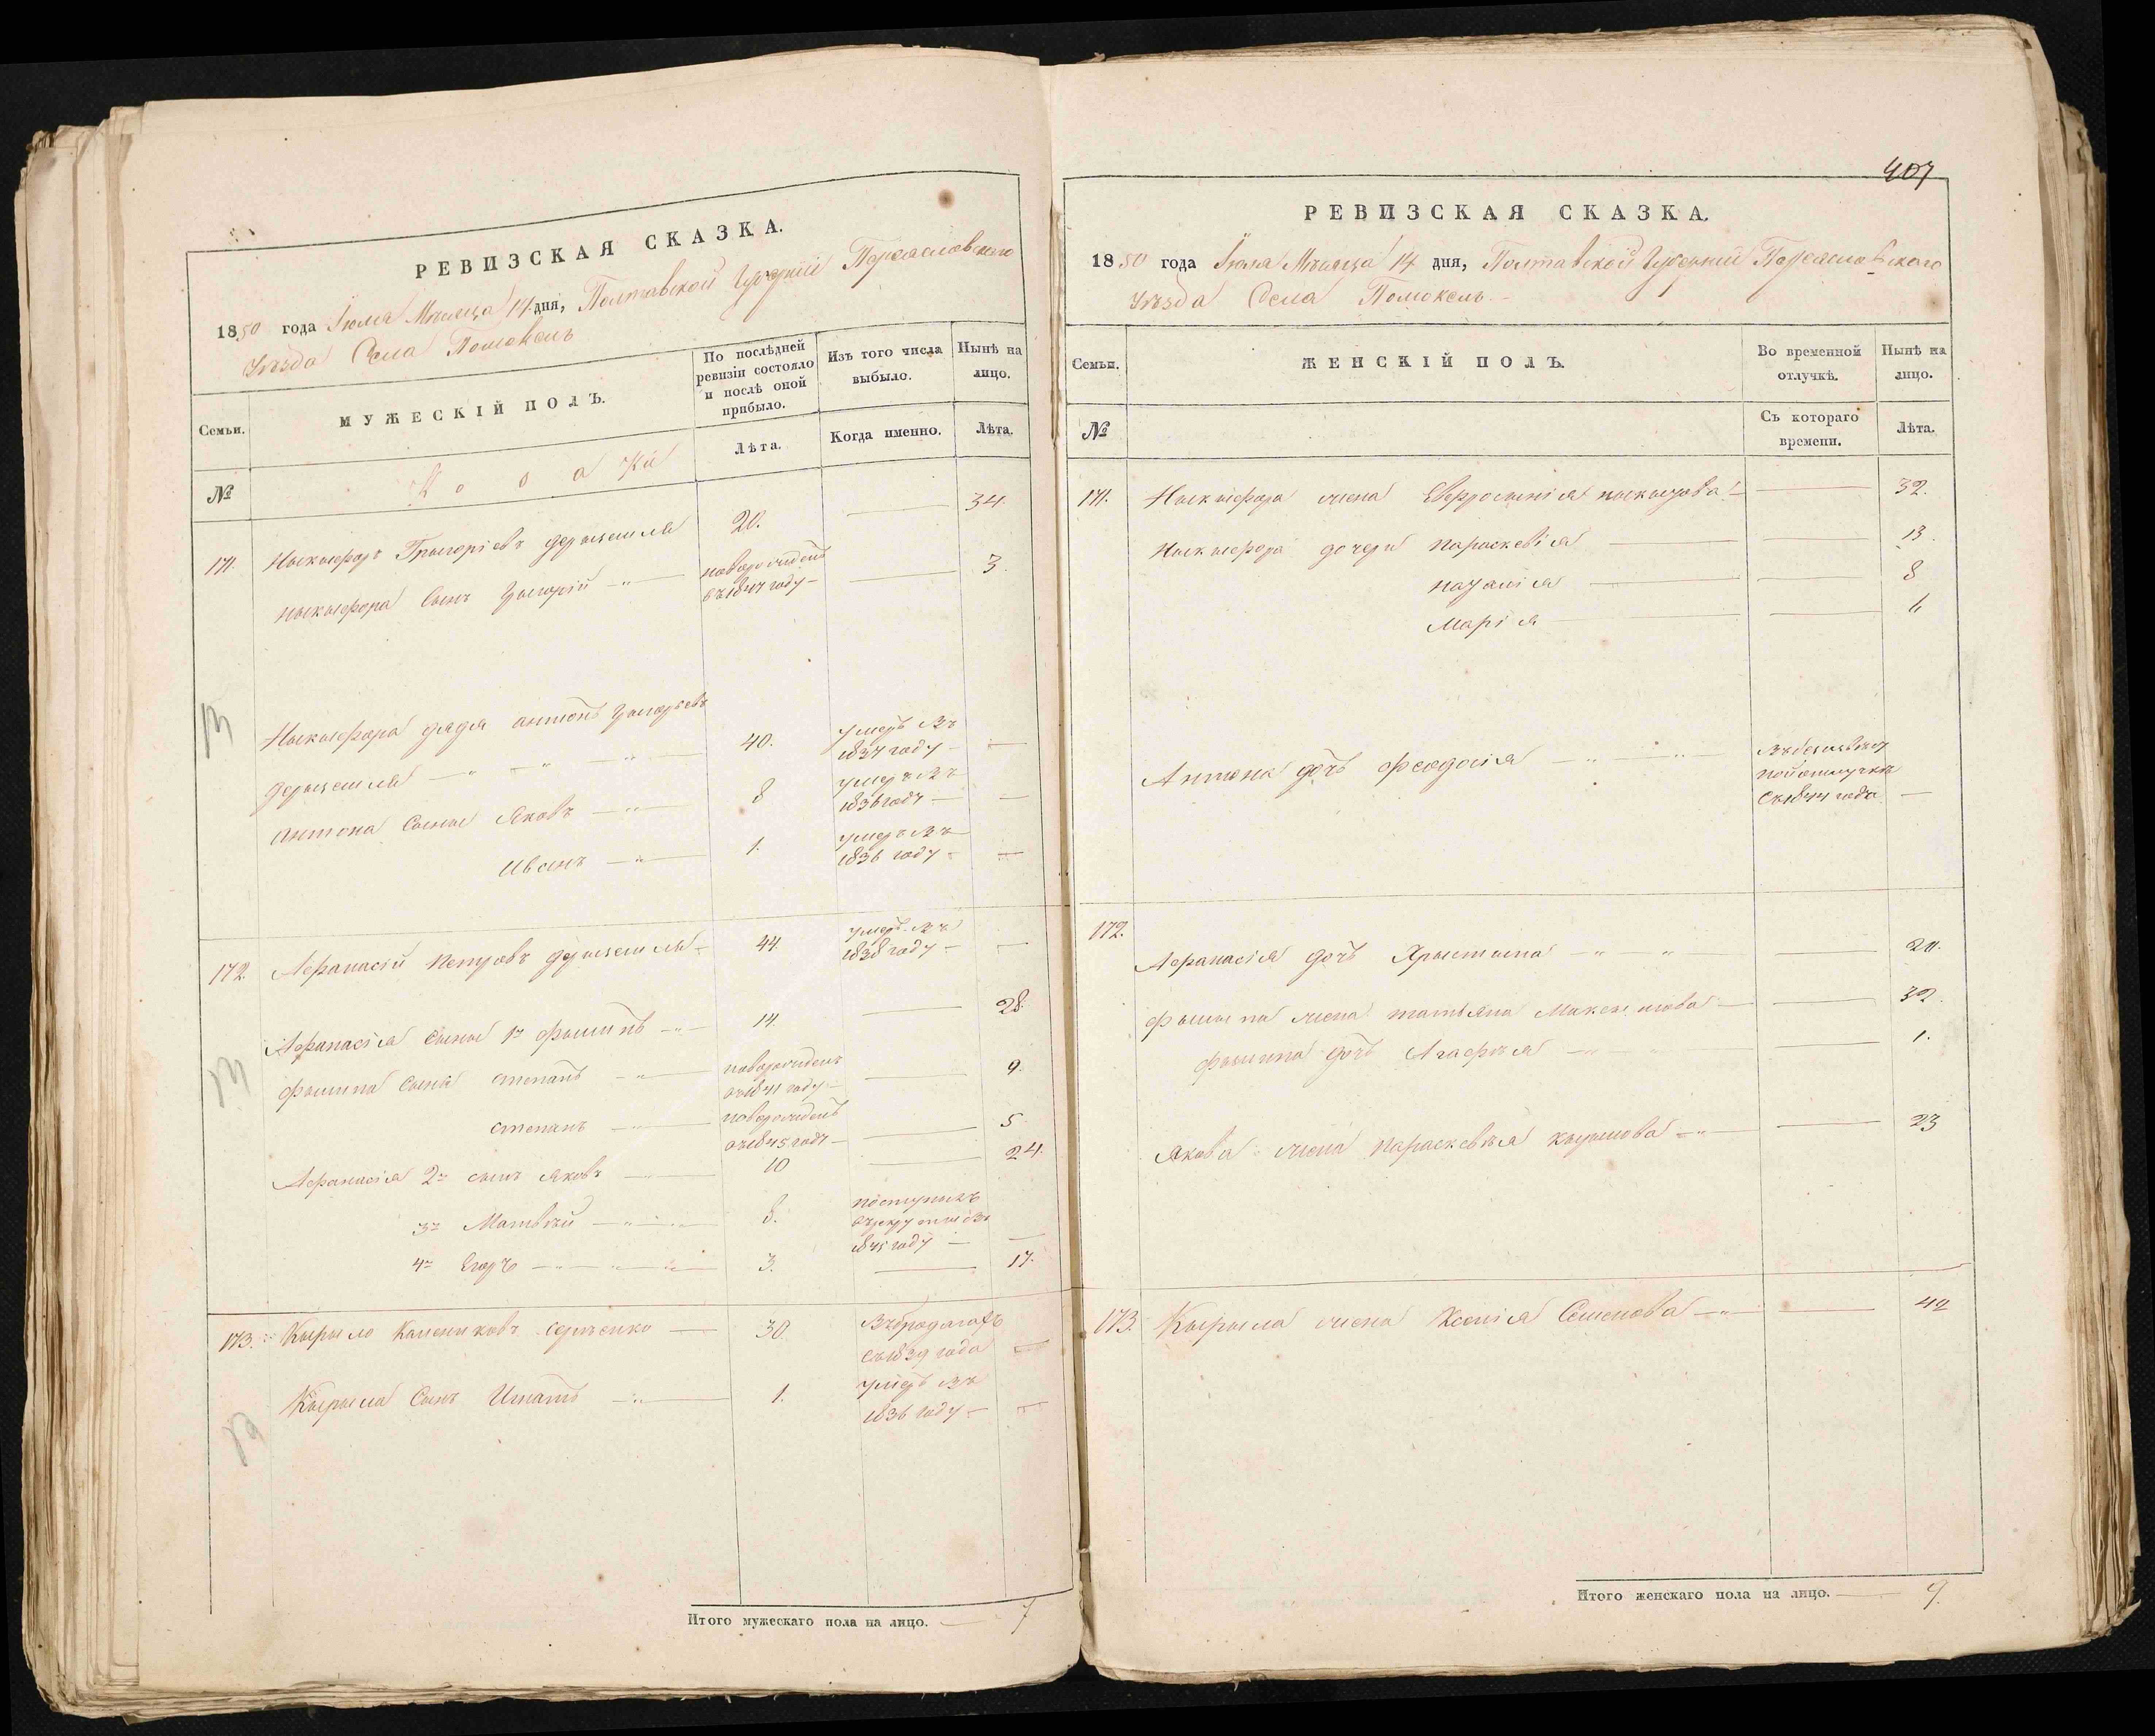 РЕВИЗСКАЯ СКАЗКА.
1850 года Іюля Мѣсяца 14 дня, Полтавской Губерніи Переяславского
Уѣзда Села Помоклъ
Семьи.
МУЖЕСКІЙ ПОЛЪ.
По послѣдней ревизіи состояло и послѣ оной прибыло.
Изъ того числа выбыло.
Нынѣ на лицо.
№
Лѣта.
Когда именно.
Лѣта.
Козаки
171. Никифоръ Григоріевъ 20. 34.
Никифора Сынъ Григорій новорожденъ въ 1847 году 3.
Никифора дядя Антонъ Григорьевъ
40. умеръ въ 1837 году
Антона Сыны Яковъ 8 умеръ въ 1836 году
Иванъ 1. умеръ въ 1836 году
172. Афанасій Петровъ 44. умеръ въ 1838 году
Афанасія Сыны 1й Филипъ 14. 28.
Филипа Сыны Степанъ новорожденъ въ 1841 году 9.
Степанъ новорожденъ въ 1845 году 5.
Афанасія 2й сынъ Яковъ 10 24.
3й Матвѣй 8. поступилъ въ рекруты въ 1845 году
4й Егоръ 3. 17.
173. Кирило Калениковъ Сергѣенко 30 Въ бродягахъ съ 1839 года
Кирила Сынъ Игнатъ 1. умеръ въ 1836 году
Итого мужескаго пола на лицо. 7
407
РЕВИЗСКАЯ СКАЗКА.
1850 года Іюля Мѣсяца 14 дня, Полтавской Губерніи Переяславского
Уѣзда Села Помоклъ
Семьи.
ЖЕНСКІЙ ПОЛЪ.
Во временной отлучкѣ.
Нынѣ на лицо.
№
Съ котораго времени.
Лѣта.
171. Никифора жена Евфросинія 32.
Никифора дочери Параскевія 13.
Наталія 8
Марія 6
Антона дочь Феодосія Въ безызвѣстной отлучкѣ съ 1844 года
172.
Афанасія дочь Христина 20.
Филипа жена Татьяна Максимова 32.
Филипа дочь Агафія 1.
Якова жена Параскевія 23
173. Кирила жена Ксенія Семенова 42
Итого женскаго пола на лицо. 9.